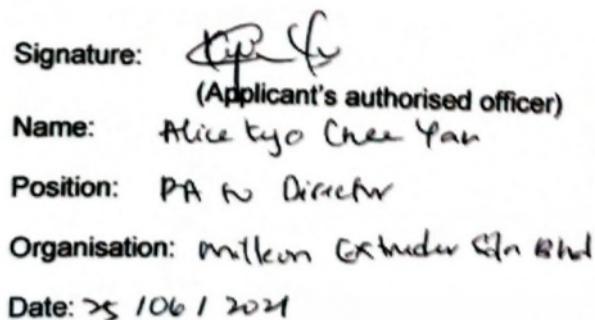 Signature:
(Applicant's authorised officer)
Name: Alice Kyo Chee Yan
Position: PA to Director
Organisation: Extruder Sdn Bhd
Date: 25 / 06 / 2021